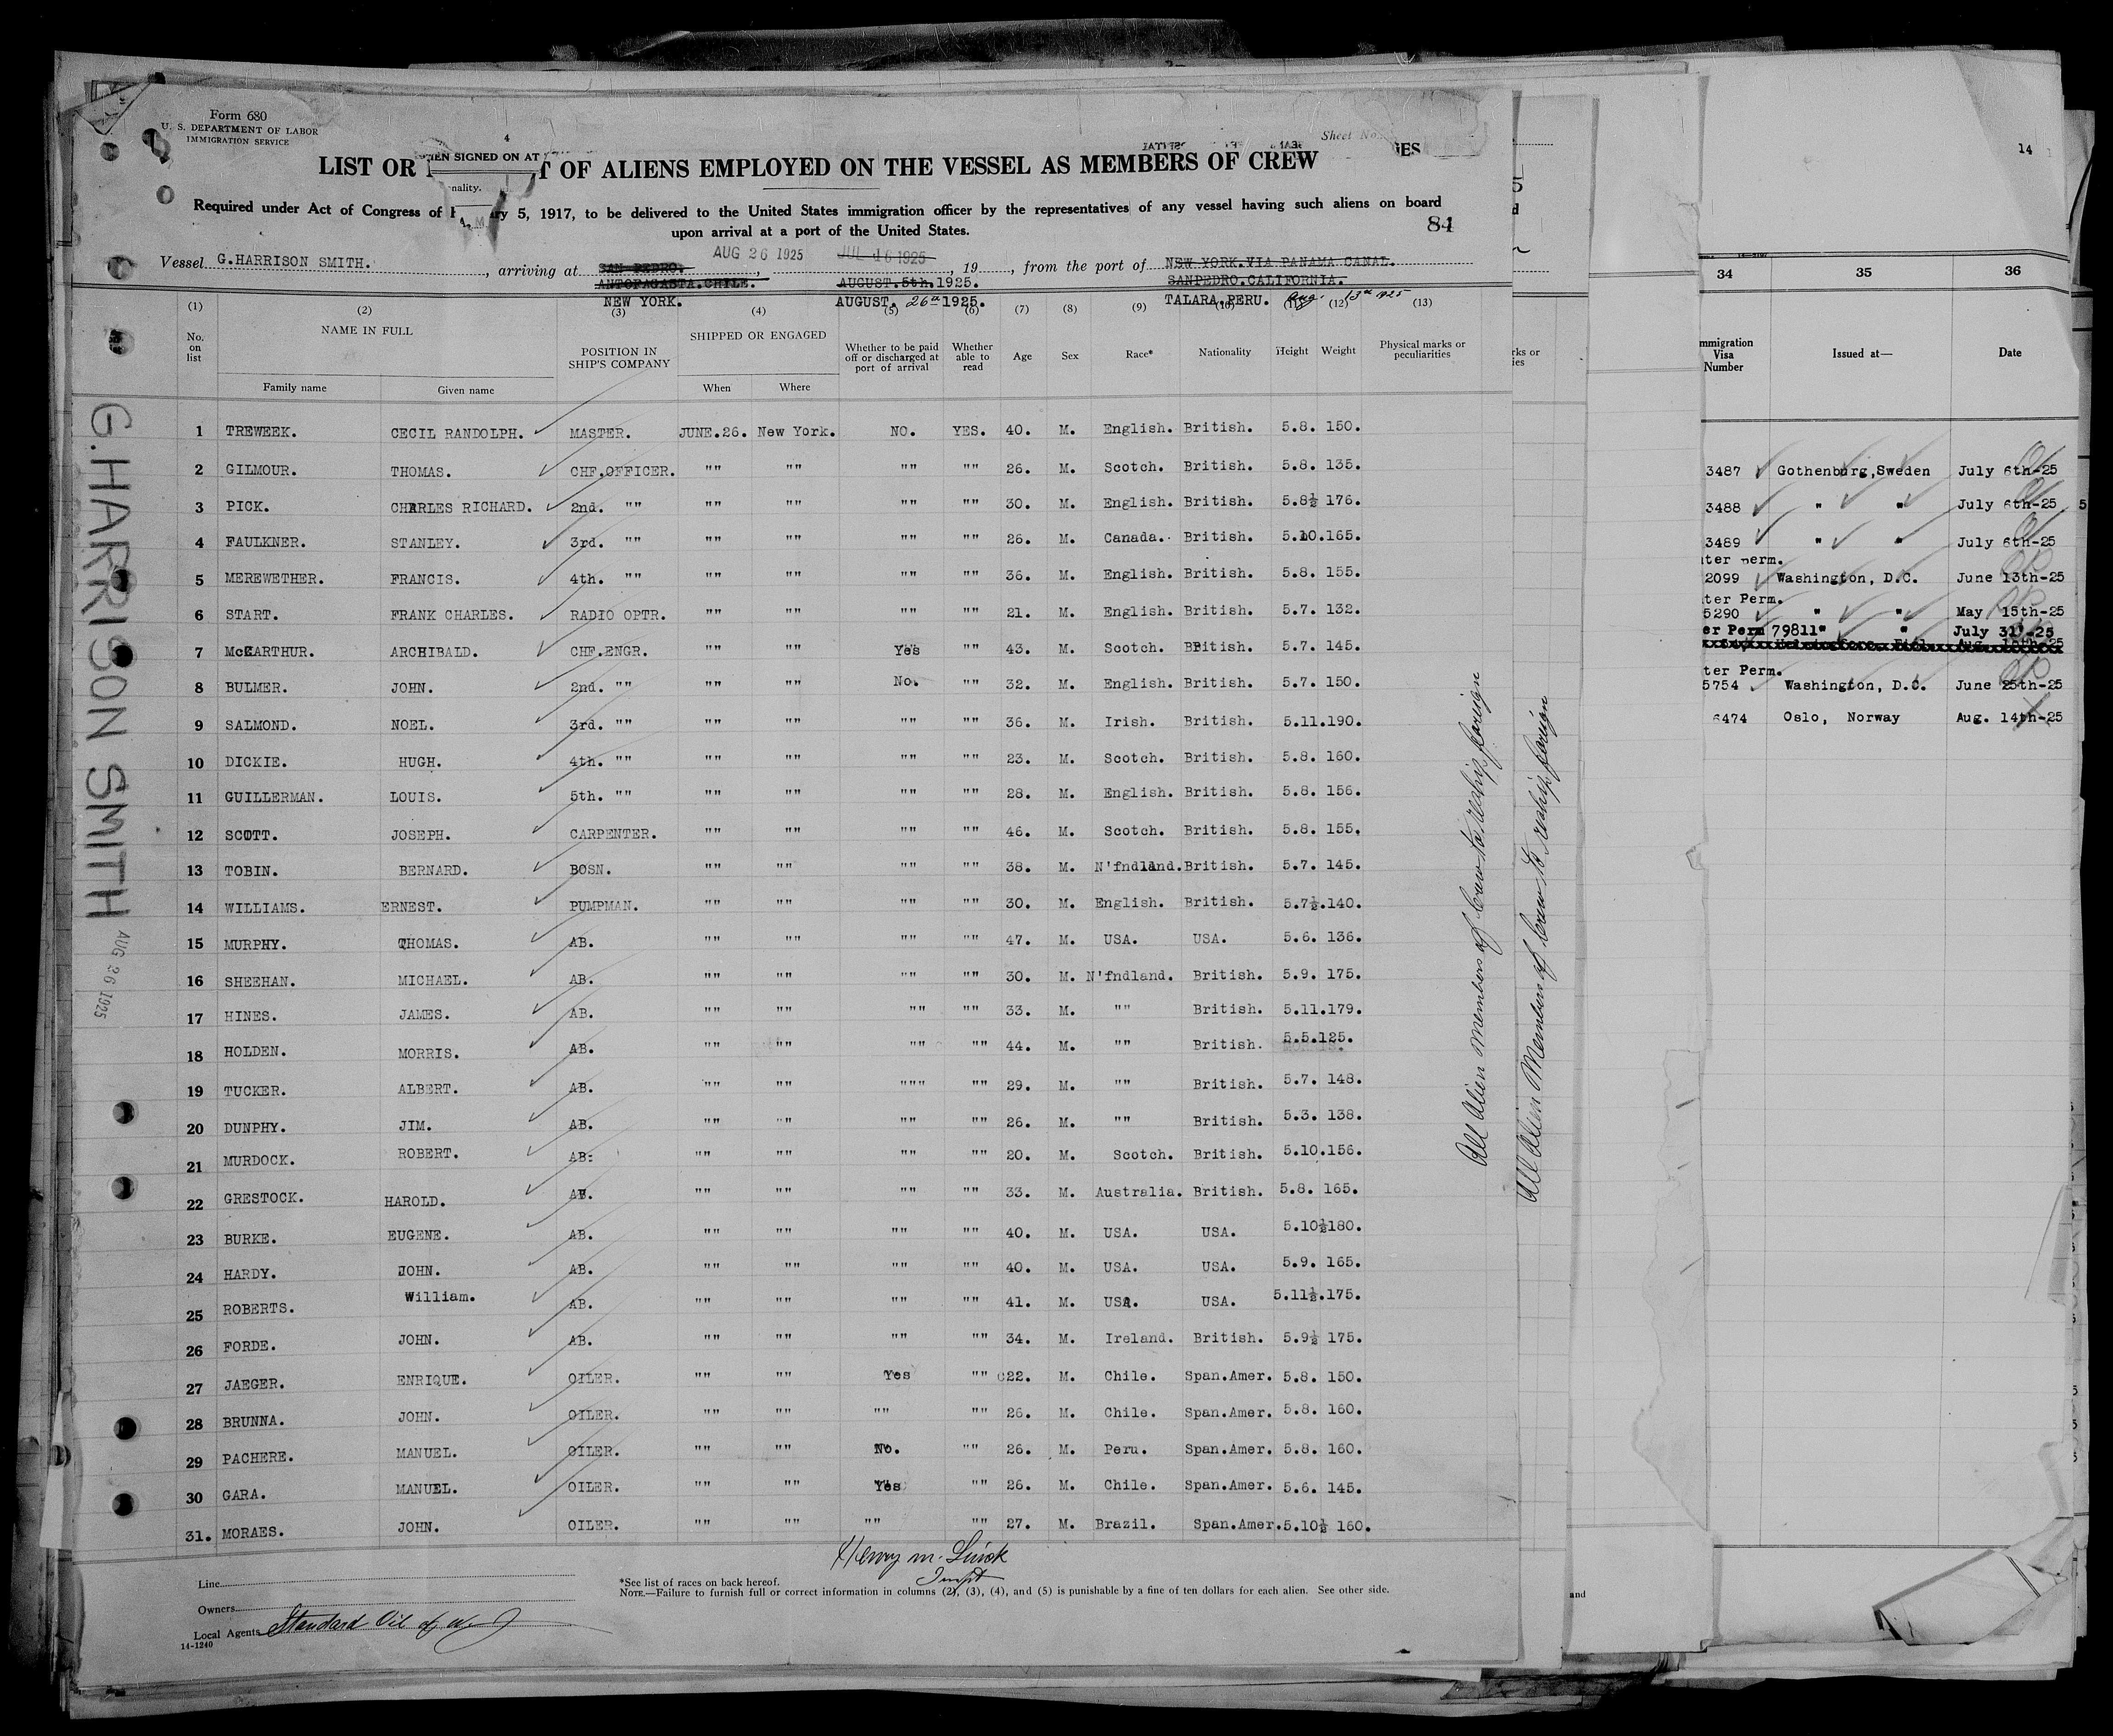 Form 680
U. S. DEPARTMENT OF LABOR
IMMIGRATION SERVICE
4
Sheet No.
WHEN SIGNED ON AT
LIST OR T OF ALIENS EMPLOYED ON THE VESSEL AS MEMBERS OF CREW
nality.
Required under Act of Congress of ry 5, 1917, to be delivered to the United States immigration officer by the representatives of any vessel having such aliens on board
upon arrival at a port of the United States.
84
AUG 26 1925 JUL 16 1925
Vessel G.HARRISON SMITH. , arriving at SAN PEDRO. , 19 , from the port of NEW YORK.VIA PANAMA CANAL.
ANTOFAGASTA.CHILE. AUGUST.5th.1925. SANPEDRO.CALIFORNIA.
NEW YORK. AUGUST. 26th 1925. TALARA.PERU. Aug. 13th 1925
(1) (2) (3) (4) (5) (6) (7) (8) (9) (10) (11) (12) (13)
No. on list NAME IN FULL POSITION IN SHIP'S COMPANY SHIPPED OR ENGAGED Whether to be paid off or discharged at port of arrival Whether able to read Age Sex Race* Nationality Height Weight Physical marks or peculiarities
Family name Given name When Where
1 TREWEEK. CECIL RANDOLPH. MASTER. JUNE.26. New York. NO. YES. 40. M. English. British. 5.8. 150.
2 GILMOUR. THOMAS. CHF.OFFICER. "" "" "" "" 26. M. Scotch. British. 5.8. 135.
3 PICK. CHARLES RICHARD. 2nd. "" "" "" "" "" 30. M. English. British. 5.8½ 176.
4 FAULKNER. STANLEY. 3rd. "" "" "" "" "" 26. M. Canada. British. 5.10.165.
5 MEREWETHER. FRANCIS. 4th. "" "" "" "" "" 36. M. English. British. 5.8. 155.
6 START. FRANK CHARLES. RADIO OPTR. "" "" "" "" 21. M. English. British. 5.7. 132.
7 McCARTHUR. ARCHIBALD. CHF.ENGR. "" "" Yes "" 43. M. Scotch. British. 5.7. 145.
8 BULMER. JOHN. 2nd. "" "" "" No. "" 32. M. English. British. 5.7. 150.
9 SALMOND. NOEL. 3rd. "" "" "" "" "" 36. M. Irish. British. 5.11.190.
10 DICKIE. HUGH. 4th. "" "" "" "" "" 23. M. Scotch. British. 5.8. 160.
11 GUILLERMAN. LOUIS. 5th. "" "" "" "" "" 28. M. English. British. 5.8. 156.
12 SCOTT. JOSEPH. CARPENTER. "" "" "" "" 46. M. Scotch. British. 5.8. 155.
13 TOBIN. BERNARD. BOSN. "" "" "" "" 38. M. N'fndland. British. 5.7. 145.
14 WILLIAMS. ERNEST. PUMPMAN. "" "" "" "" 30. M. English. British. 5.7½.140.
15 MURPHY. THOMAS. AB. "" "" "" "" 47. M. USA. USA. 5.6. 136.
16 SHEEHAN. MICHAEL. AB. "" "" "" "" 30. M. N'fndland. British. 5.9. 175.
17 HINES. JAMES. AB. "" "" "" "" 33. M. "" British. 5.11.179.
18 HOLDEN. MORRIS. AB. "" "" "" "" 44. M. "" British. 5.5.125.
19 TUCKER. ALBERT. AB. "" "" """ "" 29. M. "" British. 5.7. 148.
20 DUNPHY. JIM. AB. "" "" "" "" 26. M. "" British. 5.3. 138.
21 MURDOCK. ROBERT. AB: "" "" "" "" 20. M. Scotch. British. 5.10.156.
22 GRESTOCK. HAROLD. AB. "" "" "" "" 33. M. Australia. British. 5.8. 165.
23 BURKE. EUGENE. AB. "" "" "" "" 40. M. USA. USA. 5.10½180.
24 HARDY. JOHN. AB. "" "" "" "" 40. M. USA. USA. 5.9. 165.
25 ROBERTS. William. AB. "" "" "" "" 41. M. USA. USA. 5.11½.175.
26 FORDE. JOHN. AB. "" "" "" "" 34. M. Ireland. British. 5.9½ 175.
27 JAEGER. ENRIQUE. OILER. "" "" Yes "" 22. M. Chile. Span.Amer. 5.8. 150.
28 BRUNNA. JOHN. OILER. "" "" "" "" 26. M. Chile. Span.Amer. 5.8. 160.
29 PACHERE. MANUEL. OILER. "" "" No. "" 26. M. Peru. Span.Amer. 5.8. 160.
30 GARA. MANUEL. OILER. "" "" Yes "" 26. M. Chile. Span.Amer. 5.6. 145.
31. MORAES. JOHN. OILER. "" "" "" "" 27. M. Brazil. Span.Amer. 5.10½ 160.
G. HARRISON SMITH
AUG 26 1925
All Alien Members of Crew to reship foreign
All Alien Members of Crew to reship foreign
Line
Owners
Local Agents Standard Oil of N. J
14-1240
Henry M.
Inspt
*See list of races on back hereof.
NOTE.—Failure to furnish full or correct information in columns (2), (3), (4), and (5) is punishable by a fine of ten dollars for each alien. See other side.
14
34 35 36
mmigration Visa Number Issued at— Date
3487 Gothenburg,Sweden July 6th-25
3488 " " July 6th-25 5
3489 " " July 6th-25
ter perm.
2099 Washington, D.C. June 13th-25
ter Perm.
5290 " " May 15th-25
er Perm 79811" " July 31'-25
ter Perm.
5754 Washington, D.C. June 25th-25
6474 Oslo, Norway Aug. 14th-25
rks or
ies
and